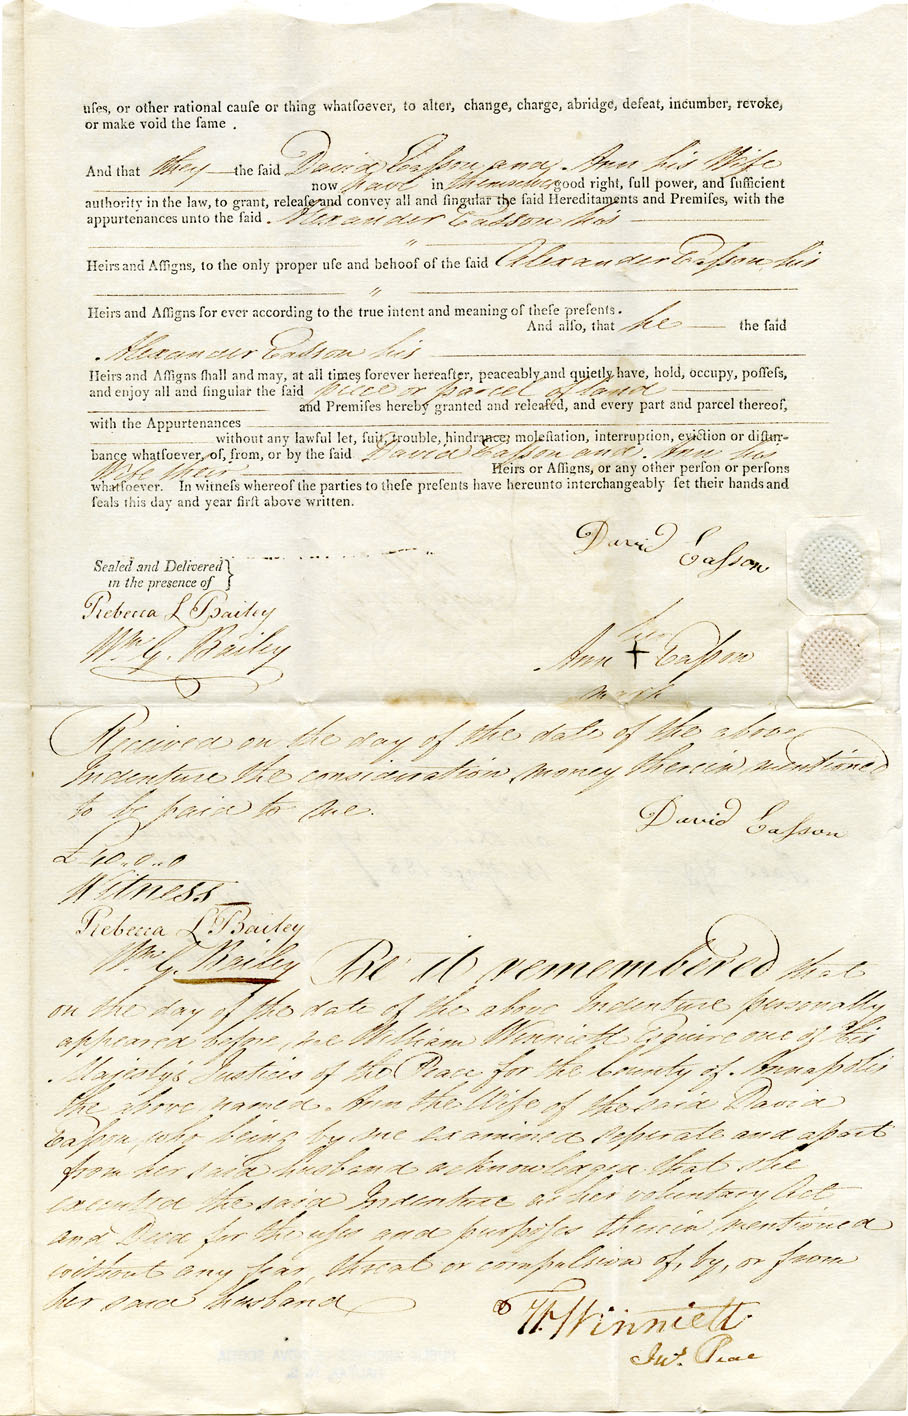 uſes, or other rational cauſe or thing whatſoever, to alter, change, charge, abridge, defeat, incumber, revoke,
or make void the ſame .
And that they the ſaid David Eaſson and Ann his Wife
now have in themselves good right, full power, and ſufficient
authority in the law, to grant, releaſe and convey all and ſingular the ſaid Hereditaments and Premiſes, with the
appurtenances unto the ſaid . Alexander Easson his
"
Heirs and Aſſigns, to the only proper uſe and behoof of the ſaid Alexander Eaſson his
"
Heirs and Aſſigns for ever according to the true intent and meaning of theſe preſents .
And alſo, that he the ſaid
Alexander Easson his
Heirs and Aſſigns ſhall and may, at all times forever hereafter, peaceably and quietly have, hold, occupy, poſſeſs,
and enjoy all and ſingular the ſaid piece or parcel of land
and Premiſes hereby granted and releaſed, and every part and parcel thereof,
with the Appurtenances
without any lawful let, ſuit, trouble, hindrance, moleſtation, interruption, eviction or diſtur-
bance whatſoever, of, from, or by the ſaid David Eaſson and Ann his
Wife their Heirs or Aſſigns, or any other perſon or perſons
whatſoever. In witneſs whereof the parties to theſe preſents have hereunto interchangeably ſet their hands and
ſeals this day and year firſt above written.
David Eaſson
Sealed and Delivered
in the presence of }
Rebecca L Bailey
Wm G. Bailey
her
Ann + Eaſson
mark
Received on the day of the date of the above
Indenture the consideration money therein mentioned
to be paid to me.
David Eaſson
£ 10..0..0
Witness
Rebecca L Bailey
Wm G. Bailey
Be it remembered that
on the day of the date of the above Indenture personally
appeared before me William Winniett Esquire one of His
Majesty's Justices of the Peace for the County of Annapolis
the above named Ann the Wife of the said David
Eaſson, who being by me examined seperate and apart
from her said husband acknowledged that she
executed the said Indenture as her voluntary Act
and Deed for the uſes and purpoſes therein mentioned
without any fear, threat or compulsion of, by, or from
her said husband
W. Winniett
Jus. Peac